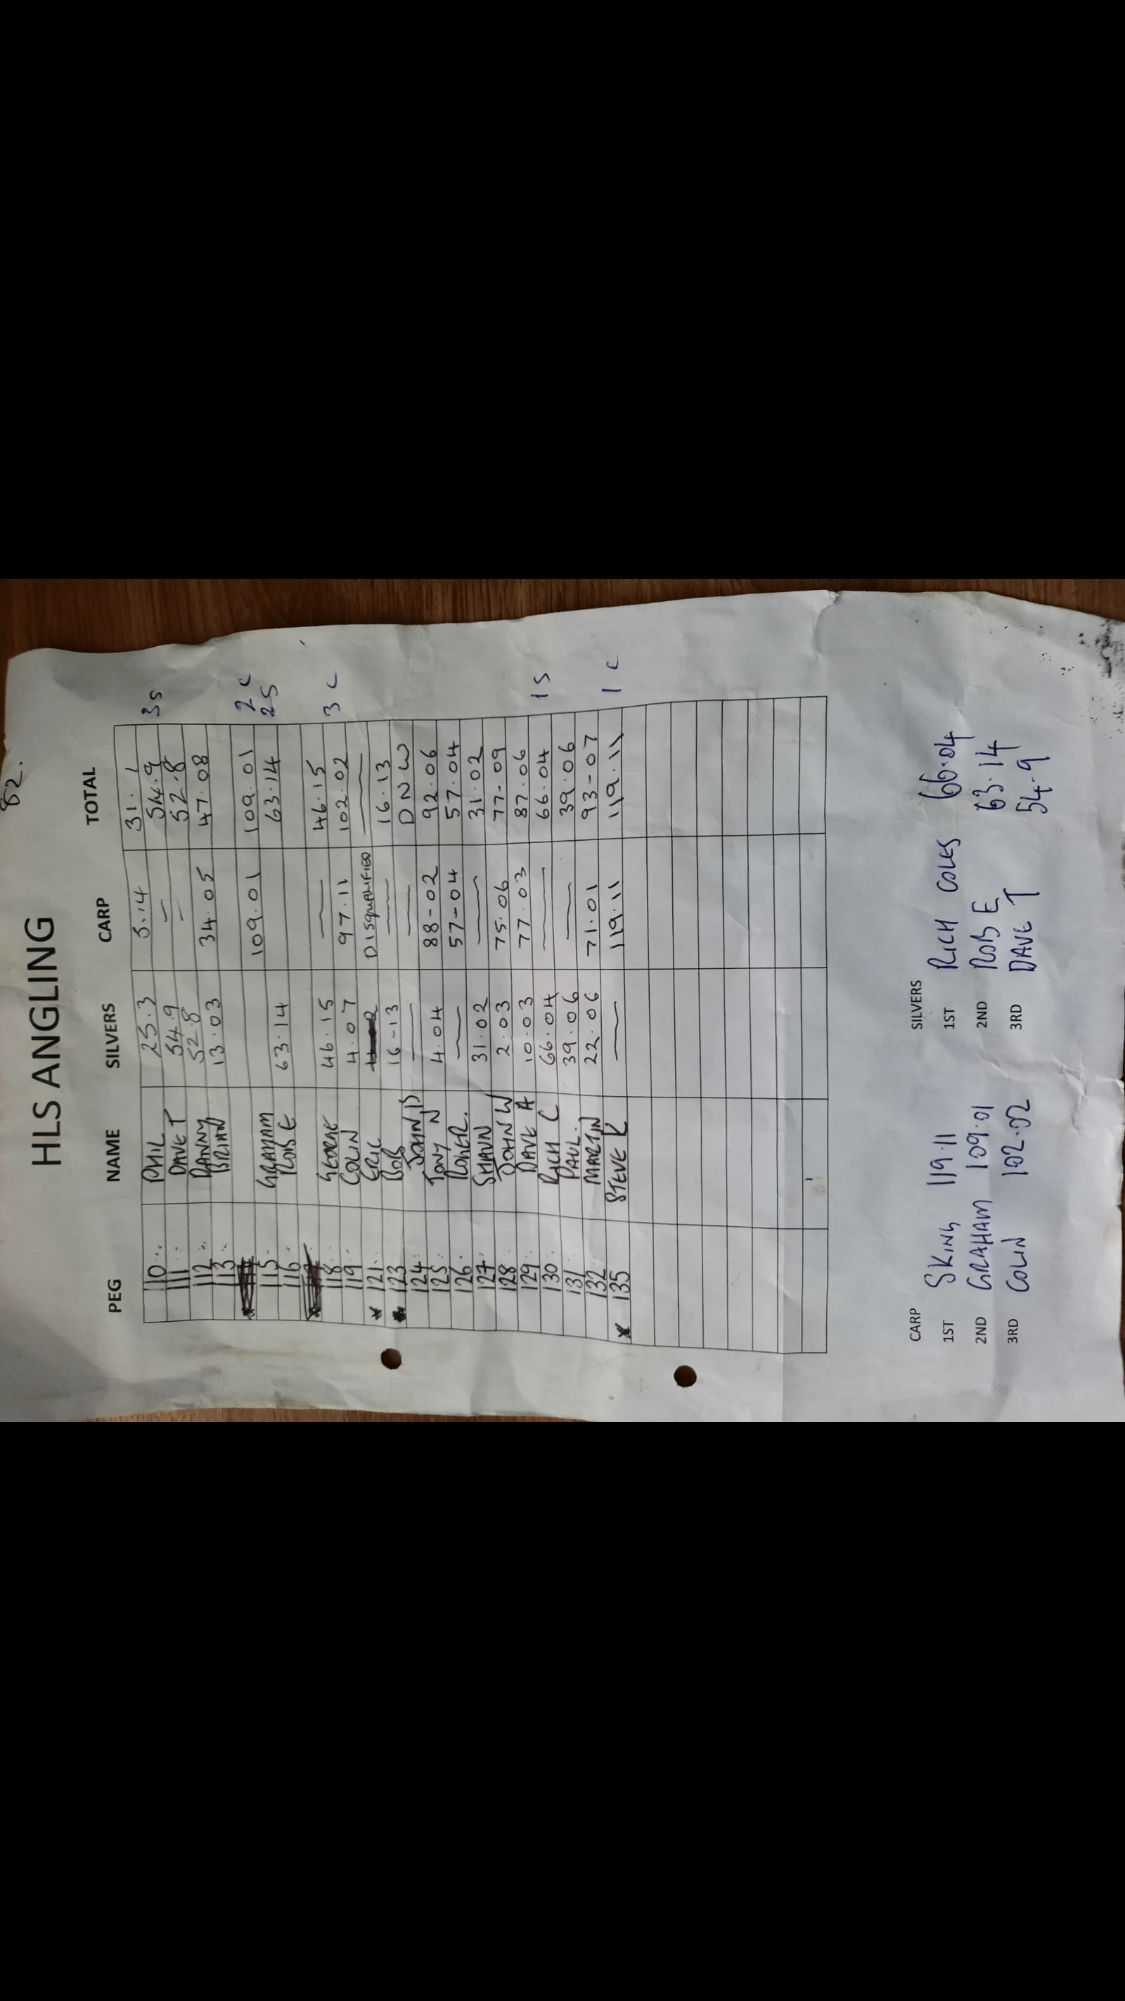 82.
HLS ANGLING
PEG NAME SILVERS CARP TOTAL
110.. PHIL 25.3 5.14 31.1
111.. DAVE T 54.9 — 54.9 3s
112.. DANNY 52.8 — 52.8
113.. BRIAN 13.03 34.05 47.08
115. GRAHAM 109.01 109.01 2c
116. ROB E 63.14 63.14 2s
118. GEORGE 46.15 — 46.15
119. COLIN 4.07 97.11 102.02 3c
* 121. ERIC DISQUALIFIED —
123. BOB 16-13 — 16.13
124. JOHN B — — DNW
125. TONY N 4.04 88-02 92.06
126. ROGER. — 57-04 57.04
127. SHAUN 31.02 — 31.02
128. JOHN W 2.03 75.06 77-09
129. DAVE A 10.03 77.03 87.06
130. RICH C 66.04 — 66.04 1s
131 PAUL. 39.06 — 39.06
132 MARTIN 22.06 71.01 93-07
* 135 STEVE K — 119.11 119.11 1c
CARP SILVERS
1ST SKING 119.11 1ST RICH COLES 66.04
2ND GRAHAM 109.01 2ND ROB E 63.14
3RD COLIN 102.02 3RD DAVE T 54.9